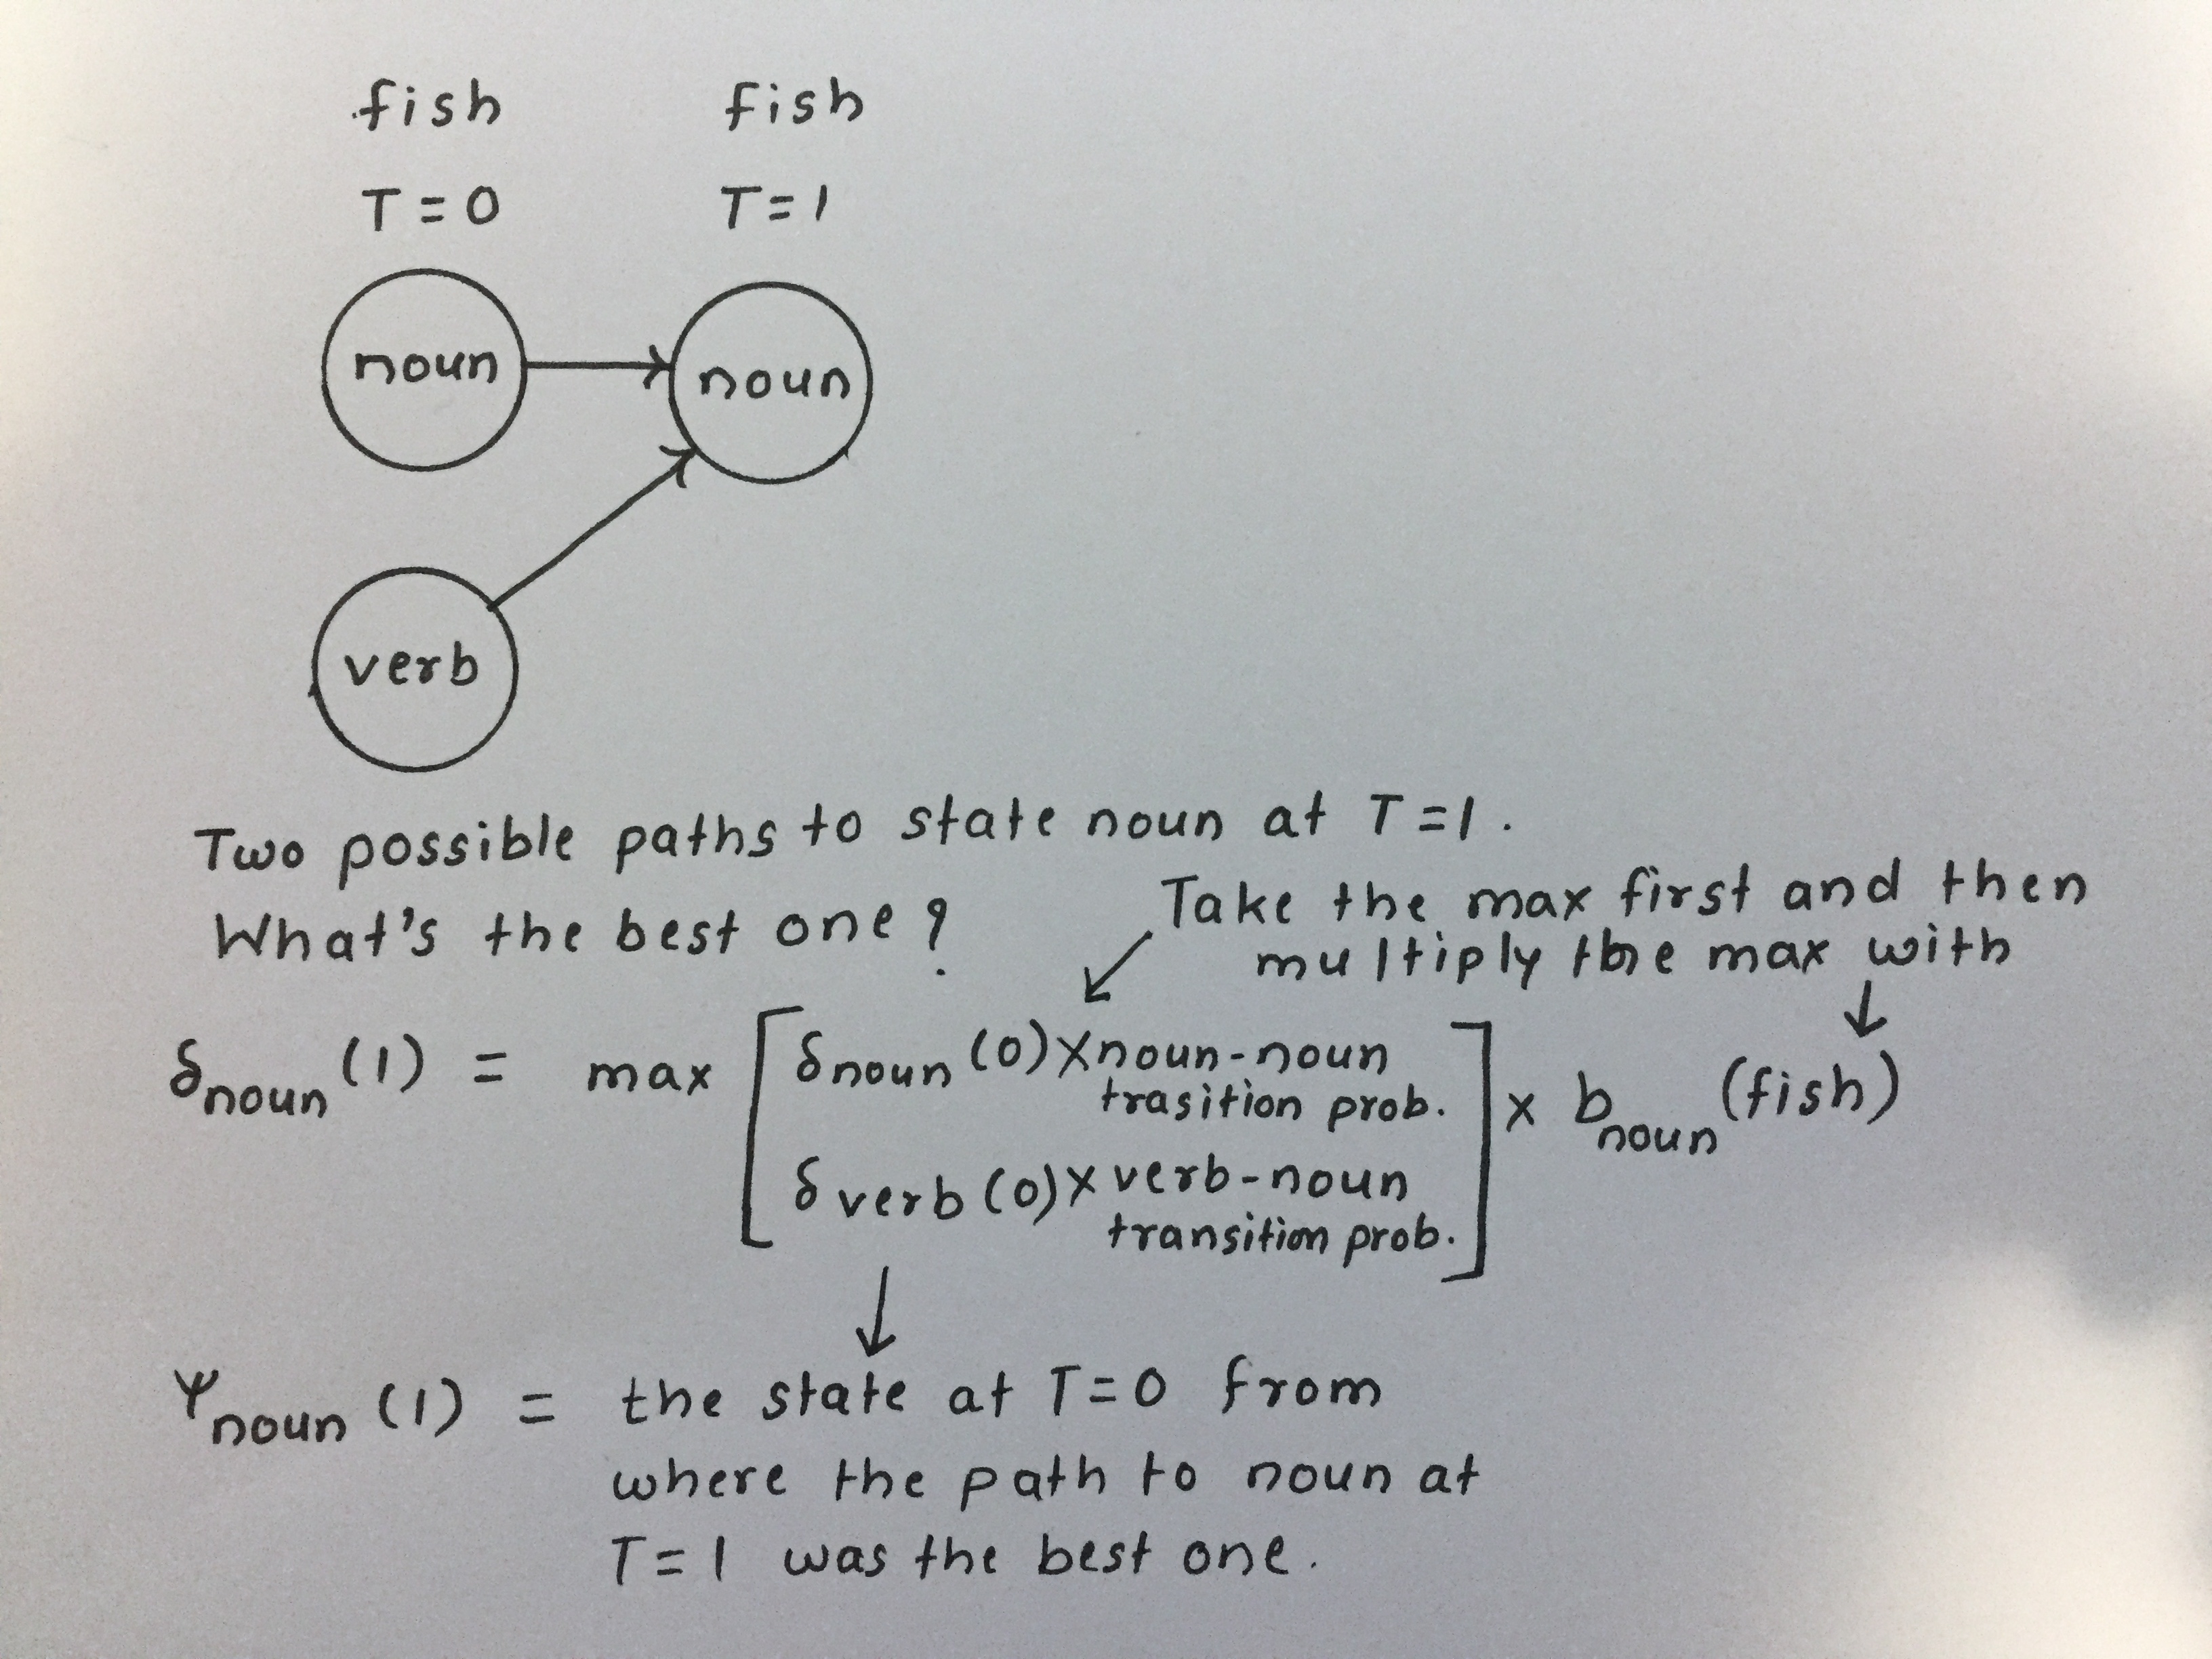 fish fish
T = 0 T = 1
noun noun
verb
Two possible paths to state noun at T = 1.
What's the best one?
Take the max first and then
multiply the max with
δnoun (1) = max [ δnoun (0) × noun-noun trasition prob.
δverb (0) × verb-noun transition prob. ] × bnoun (fish)
Ψnoun (1) = the state at T = 0 from
where the path to noun at
T = 1 was the best one.